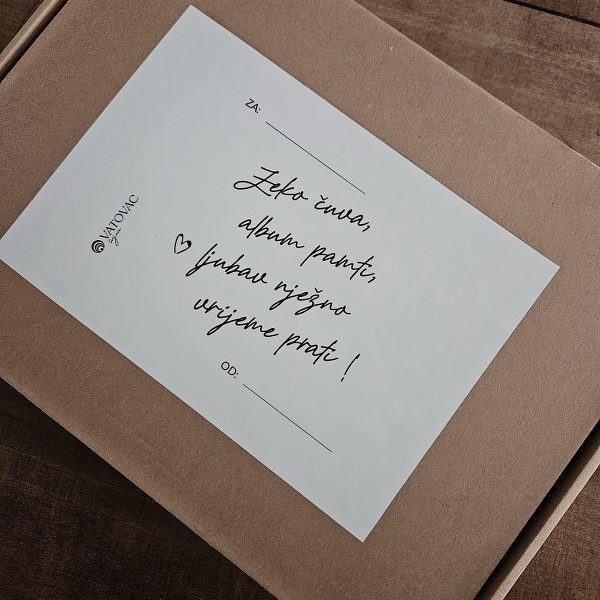 ZA:
Zeko čuva,
album pamti,
ljubav nježno
vrijeme prati!
OD:
VATOVAC